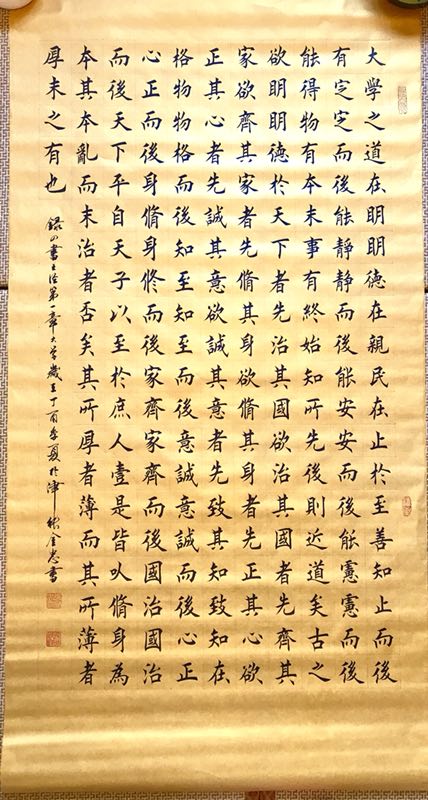 大学之道在明明德在親民在止於至善知止而後
有定定而後能靜靜而後能安安而後能慮慮而後
能得物有本末事有終始知所先後則近道矣古之
欲明明德於天下者先治其國欲治其國者先齊其
家欲齊其家者先脩其身欲脩其身者先正其心欲
正其心者先誠其意欲誠其意者先致其知致知在
格物物格而後知至知至而後意誠意誠而後心正
心正而後身脩身修而後家齊家齊而後國治國治
而後天下平自天子以至於庶人壹是皆以脩身為
本其本亂而末治者否矣其所厚者薄而其所薄者
厚未之有也
録四書五經第一章大學歲在丁酉季夏於津金忠書